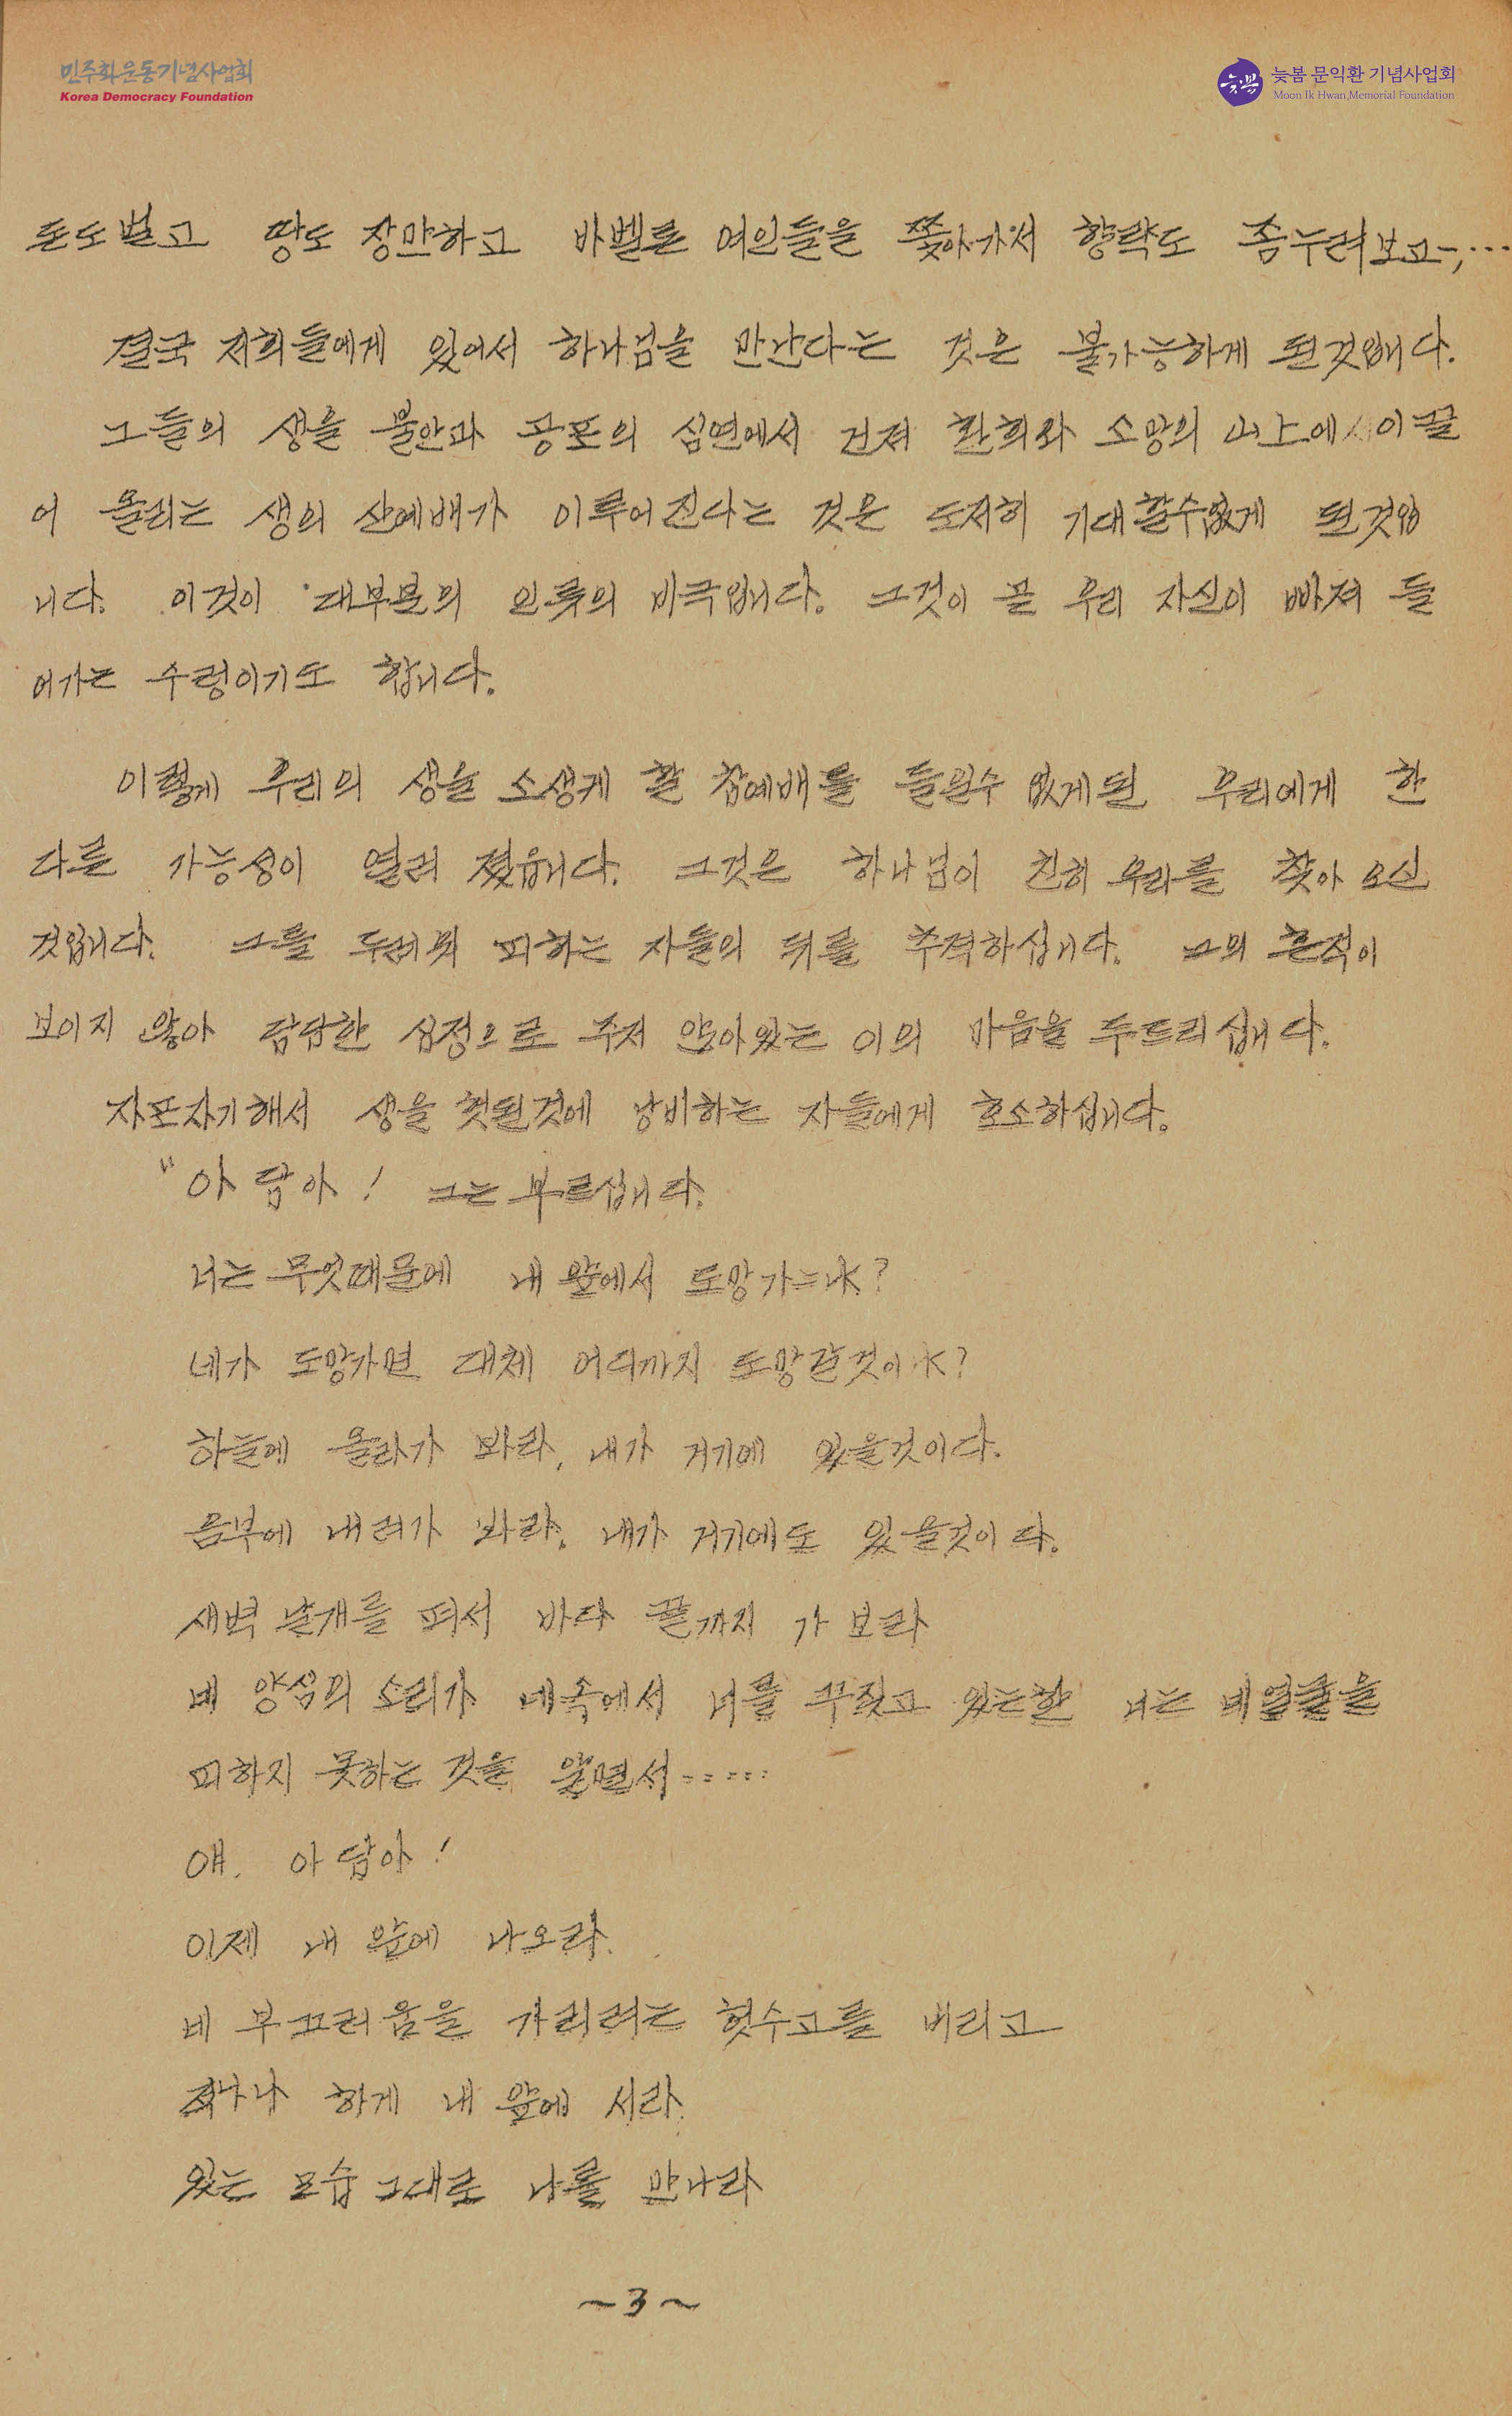 민주화운동기념사업회
Korea Democracy Foundation
늦봄
늦봄 문익환 기념사업회
Moon Ik Hwan Memorial Foundation
돈도벌고 땅도 장만하고 바벨론 여인들을 쫓아가서 향락도 좀누려보고-,…
결국 저희들에게 있어서 하나님을 만난다는 것은 불가능하게 된것입니다.
그들의 생을 불안과 공포의 심연에서 건져 환희와 소망의 山上에 이끌
어 올리는 생의 산예배가 이루어진다는 것은 도저히 기대할수없게 된것입
니다. 이것이 대부분의 인류의 비극입니다. 그것이 곧 우리 자신이 빠져 들
어가는 수렁이기도 합니다.
이렇게 우리의 생을 소생케 할 참예배를 들일수 없게된 우리에게 한
다른 가능성이 열려 졌읍니다. 그것은 하나님이 친히 우리를 찾아 오신
것입니다. 그를 두려워 피하는 자들의 뒤를 추격하십니다. 그의 흔적이
보이지 않아 답답한 심정으로 주저 앉아있는 이의 마음을 두드리십니다.
자포자기해서 생을 헛된것에 낭비하는 자들에게 호소하십니다.
"아담아! 그는 부르십니다.
너는 무엇때문에 내 앞에서 도망가느냐?
네가 도망가면 대체 어디까지 도망갈것이냐?
하늘에 올라가 봐라, 내가 거기에 있을것이다.
음부에 내려가 봐라. 내가 거기에도 있을것이다.
새벽 날개를 펴서 바다 끝까지 가 보라
네 양심의 소리가 네속에서 너를 꾸짖고 있는한 너는 내얼굴을
피하지 못하는 것을 알면서-----
얘. 아담아!
이제 내 앞에 나오라.
네 부끄러움을 가리려는 헛수고를 버리고
적나나 하게 내 앞에 서라.
있는 모습 그대로 나를 만나라
~3~